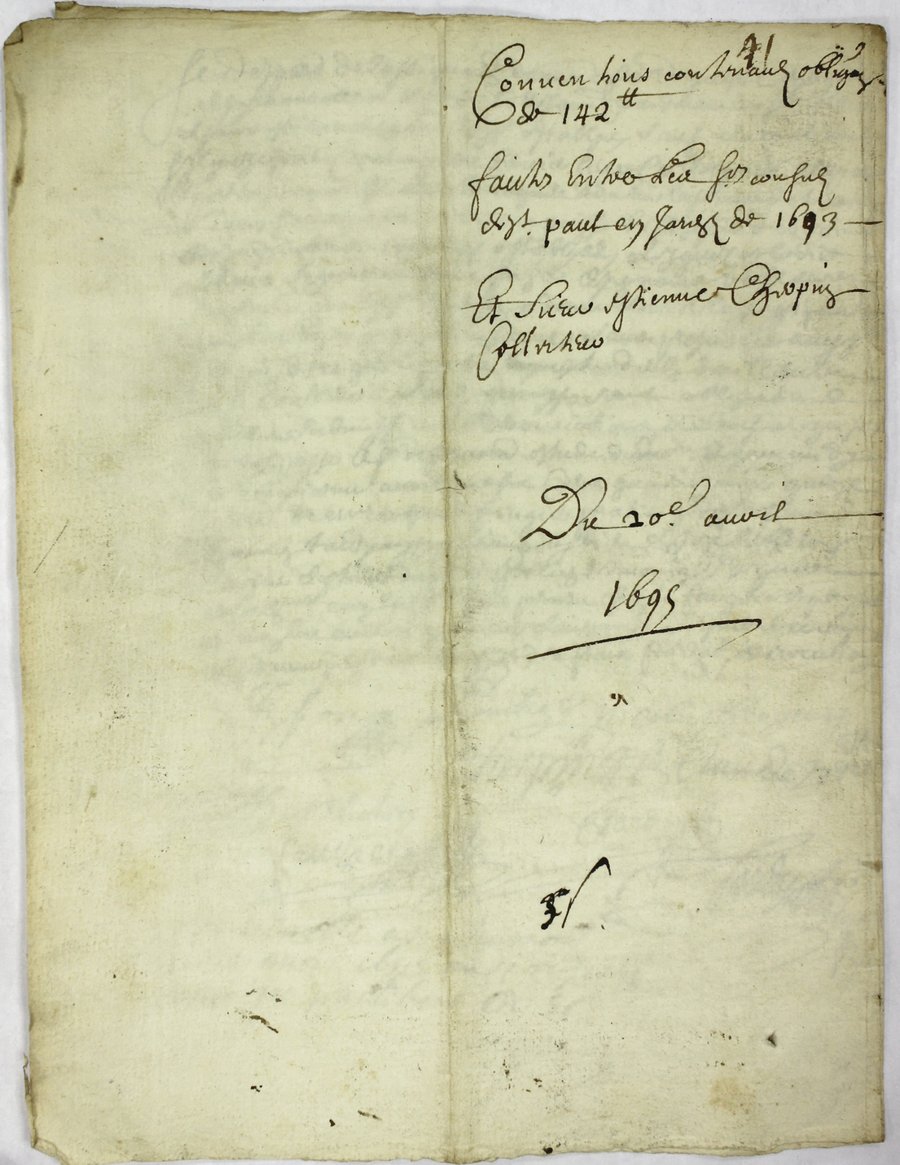 41
Conuentions contenant obligaõn
de 142 ₶
faictes Entre Les srs consulz
de st. paul en Jarez de 1693
Et Sieur estienne Chopin
Collecteur
Du 20e. auril
1695